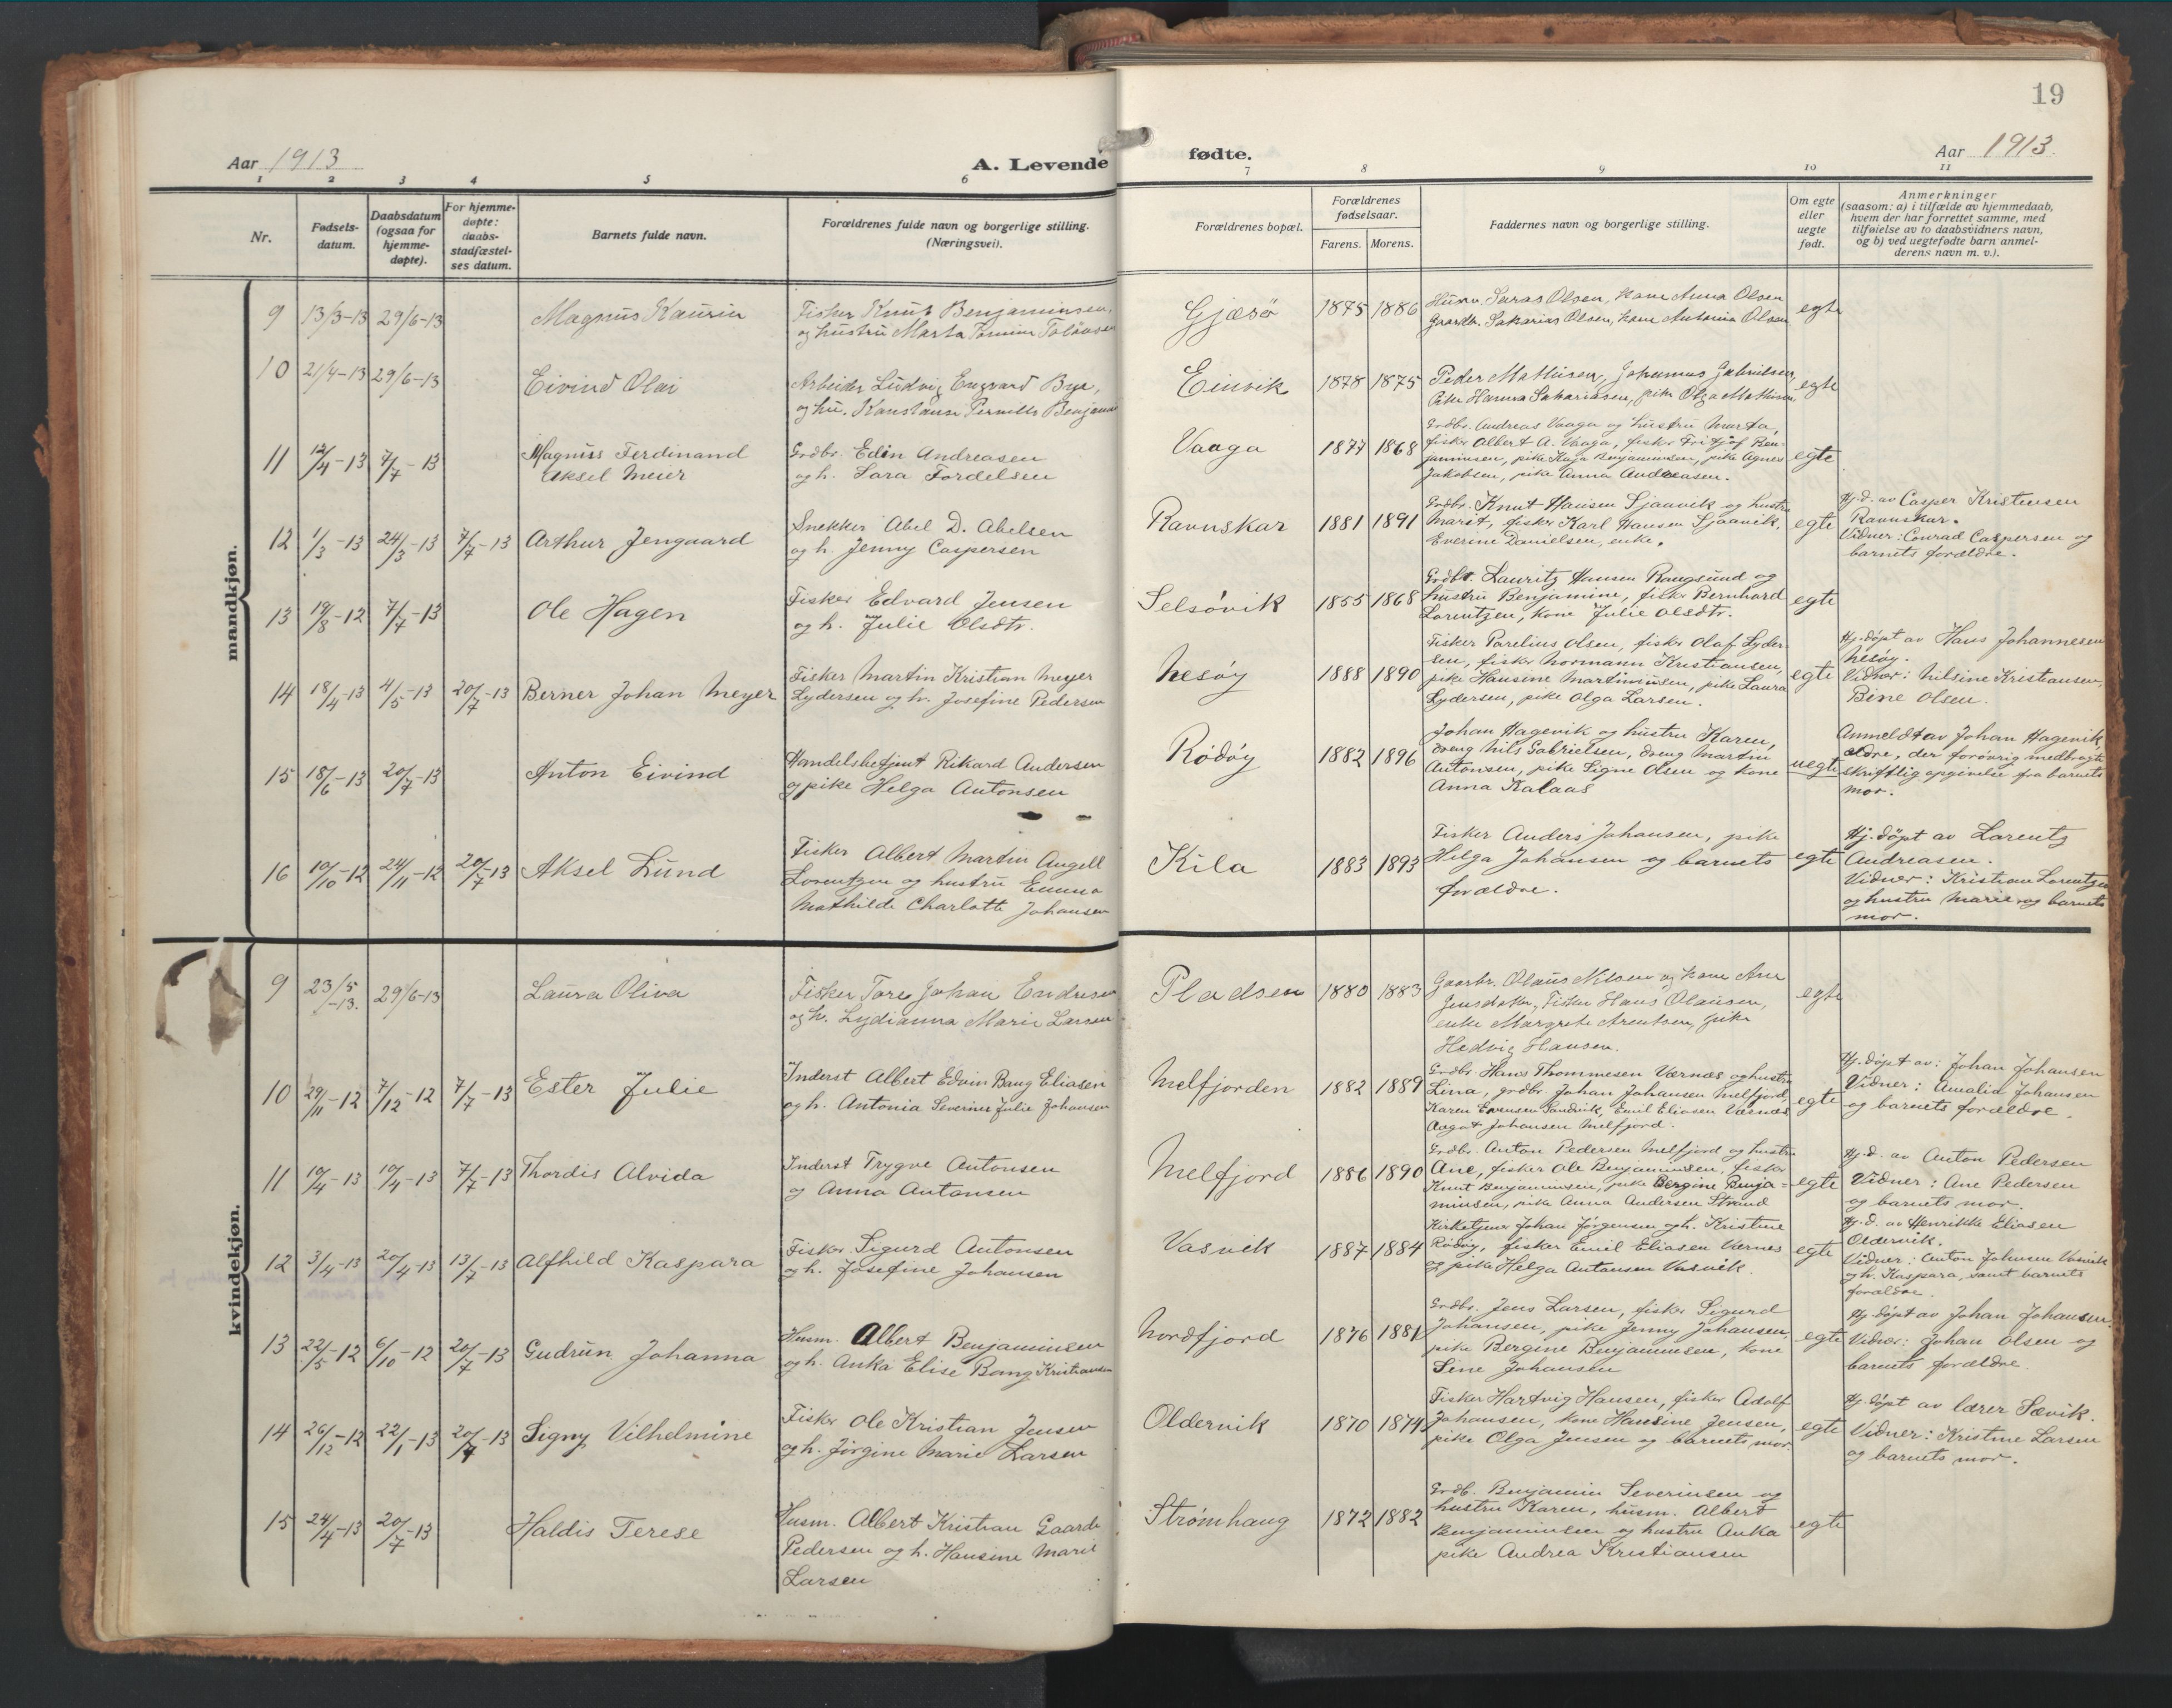 19
Aar 1913
A. Levende fødte.
Aar 1913.
1 2 3 4 5 6 7 8 9 10 11
Nr.
Fødsels-
datum.
Daabsdatum
(ogsaa for
hjemme-
døpte).
For hjemme-
døpte:
daabs-
stadfæstel-
ses datum.
Barnets fulde navn.
Forældrenes fulde navn og borgerlige stilling.
(Næringsvei).
Forældrenes bopæl.
Forældrenes
fødselsaar.
Farens. Morens.
Faddernes navn og borgerlige stilling.
Om egte
eller
uegte
født.
Anmerkninger
(saasom: a) i tilfælde av hjemmedaab,
hvem der har forrettet samme, med
tilføielse av to daabsvidners navn,
og b) ved uegtefødte barn anmel-
derens navn m. v.).
mandkjøn.
9 13/3-13 29/6-13
Magnus Kaurin
Fisker Knut Benjaminsen,
og hustru Marta
Gjæsø
1875 1886
Olsen, kone Anna Olsen
Gaardbr. Sakarias Olsen, kone Antonia Olsen
egte
10 21/4-13 29/6-13
Eivind Olai
Arbeider Ludvig Engvard Bye,
og hu. Konstanse Pernille
Einvik
1878 1875
Peder Mathisen, Johannes Gabrielsen,
Pike Hanna Sakariasen, pike Olga Mathisen,
egte
11 12/4-13 7/7-13
Magnus Ferdinand
Aksel Meier
Grdbr. Edin Andreasen
og h. Sara Fordelsen
Vaaga
1877 1868
Grdbr. Andreas Vaaga og hustru Marta,
fisker Albert A. Vaaga, fisker Fritjof Ben-
jaminsen, pike Kaja Benjaminsen, pike Agnes
Jakobsen, pike Anna Andreasen.
egte
12 1/3-13 24/3-13 7/7-13
Arthur Jengaard
Snekker Abel D. Abelsen
og h. Jenny Caspersen
Ravnskar
1881 1891
Grdbr. Knut Hansen Sjaavik og hustru
Marit, fisker Karl Hansen Sjaavik,
Everine Danielsen, enke.
egte
Hj.d. av Casper Kristensen
Ravnskar.
Vidner: Conrad Caspersen og
barnets forældre.
13 19/8-12 7/7-13
Ole Hagen
Fisker Edvard Jensen
og h. Julie Olsdtr.
Selsövik
1855 1868
Grdbr. Lauritz Hansen Rangsund og
hustru Benjamine, fisker Bernhard
Lorentzen, kone Julie Olsdtr.
egte
14 18/4-13 4/5-13 20/7-13
Berner Johan Meyer
Fisker Martin Kristian Meyer
Lydersen og h. Josefine Pedersen
Nesöy
1888 1890
Fisker Parelius Olsen, fisker Olaf Lyder-
sen, fisker Normann Kristiansen,
pike Hansine Martinusen, pike Laura
Lydersen, pike Olga Larsen.
egte
Hj.döpt av Hans Johannesen
Nesöy.
Vidner: Nilsine Kristiansen,
Bine Olsen.
15 18/6-13 20/7-13
Anton Eivind
Handelsbetjent Rikard Andersen
og pike Helga Antonsen
Rödöy
1882 1896
Johan Hagevik og hustru Karen,
dreng Nils Gabrielsen, dreng Martin
Antonsen, pike Signe Olsen og kone
Anna Kalaas
uegte
Anmeldt av Johan Hagevik,
ældre, der forövrig medbragte
skriftlig opgivelse fra barnets
mor.
16 10/10-12 24/11-12 20/7-13
Aksel Lund
Fisker Albert Martin Angell
Lorentzen og hustru Emma
Mathilde Charlotte Johansen
Kila
1883 1893
Fisker Anders Johansen, pike
Helga Johansen og barnets
forældre.
egte
Hj.döpt av Lorentz
Andreasen.
Vidner: Kristian Lorentzen
og hustru Marie og barnets
mor.
kvindekjøn.
9 23/5-13. 29/6-13
Laura Oliva
Fisker Tore Johan Endresen
og h. Lydianna Marie Larsen
Pladsen
1880 1883
Gaarbr. Olaus Nilsen og kone Ane
Fisker Hans Olausen,
enke Margrete Arentsen, pike
Hedvig Hansen.
egte
10 29/11-12 7/12-12 7/7-13
Ester Julie
Inderst Albert Edvin Bang Eliasen
og h. Antonia Severine Julie Johansen
Melfjorden
1882 1889
Grdbr. Hans Thommesen Værnæs og hustru
Lina, grdbr. Johan Johansen Melfjord,
Karen Evensen Sandvik, Emil Eliasen Værnæs
Aagot Johansen Melfjord.
egte
Hj.döpt av: Johan Johansen
Vidner: Amalia Johansen
og barnets forældre.
11 19/4-13 19/4-13 7/7-13
Thordis Alvida
Inderst Trygve Antonsen
og Anna Antonsen
Melfjord
1886 1890
Grdbr. Anton Pedersen Melfjord og hustru
Ane, fisker Ole Benjaminsen, fisker
Knut Benjaminsen, pike Bergine Benja-
minsen, pike Anna Andersen Strand
egte
Hj.d. av Anton Pedersen
Vidner: Ane Pedersen
og barnets mor.
12 3/4-13 20/4-13 13/7-13
Alfhild Kaspara
Fisker Sigurd Antonsen
og h. Josefine Johansen
Vasvik
1887 1884
Kirketjener Johan Jörgensen og h. Kristine
Rödöy, fisker Emil Eliasen Værnes
og pike Helga Antonsen Vasvik.
egte
Hj.d. av Henrikke Eliasen
Oldervik.
Vidner: Anton Johnsen Vasvik
og h. Kaspara, samt barnets
forældre.
13 22/5-12 6/10-12 20/7-13
Gudrun Johanna
Husm. Albert Benjaminsen
og h. Anka Elise Bang Kristiansen
Nordfjord
1876 1881
Grdbr. Jens Larsen, fisker Sigurd
Johansen, pike Jenny Johansen,
pike Bergine Benjaminsen, kone
Sine Johansen
egte
Hj.döpt av Johan Johansen.
Vidner: Johan Olsen og
barnets forældre.
14 26/12-12 22/1-13 20/7-13
Signy Vilhelmine
Fisker Ole Kristian Jensen
og h. Jörgine Marie Larsen
Oldervik
1870 1874
Fisker Hartvig Hansen, fisker Adolf
Johansen, kone Hansine Jensen,
pike Olga Jensen og barnets mor
egte
Hj.döpt av lærer Sævik.
Vidner: Kristine Larsen
og barnets mor.
15 24/4-13 20/7-13
Haldis Terese
Husm. Albert Kristian Gaarde
Pedersen og h. Hansine Marie
Larsen
Strömhaug
1872 1882
Grdb. Benjamin Severinsen og
hustru Karen, husm. Albert
Benjaminsen og hustru Anka
pike Andrea Kristiansen
egte